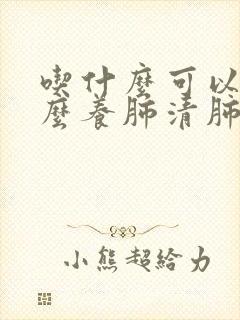 喫什麼可以
麼養肺清肺
小熊超給力